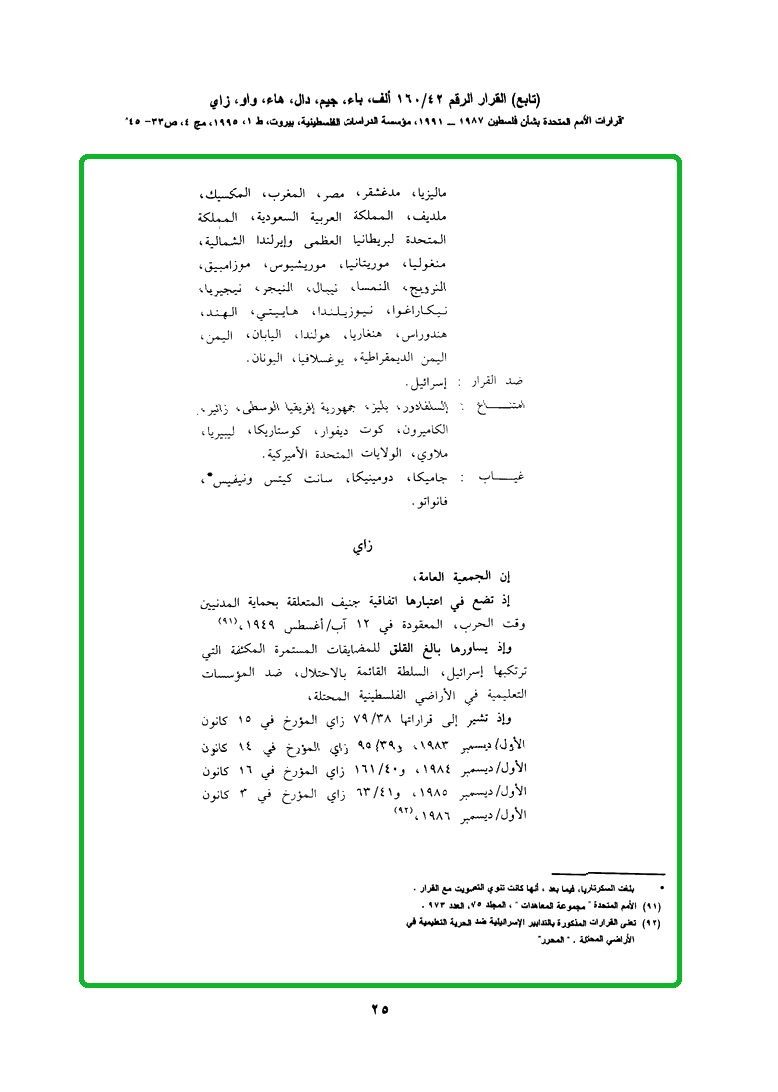 (تابع) القرار الرقم ١٦٠/٤٢ ألف، باء، جيم، دال، هاء، واو، زاي
"قرارات الأمم المتحدة بشأن فلسطين ١٩٨٧ – ١٩٩١، مؤسسة الدراسات الفلسطينية، بيروت، ط ١، ١٩٩٥، مج ٤، ص٣٣- ٤٥"
ماليزيا، مدغشقر، مصر، المغرب، المكسيك،
ملديف، المملكة العربية السعودية، المملكة
المتحدة لبريطانيا العظمى وإيرلندا الشمالية،
منغوليا، موريتانيا، موريشيوس، موزامبيق،
النرويج، النمسا، نيبال، النيجر، نيجيريا،
نيكاراغوا، نيوزيلندا، هاييتي، الهند،
هندوراس، هنغاريا، هولندا، اليابان، اليمن،
اليمن الديمقراطية، يوغسلافيا، اليونان.
ضد القرار : إسرائيل.
امتنـــاع : السلفادور، بليز، جمهورية إفريقيا الوسطى، زائير،
الكاميرون، كوت ديفوار، كوستاريكا، ليبيريا،
ملاوي، الولايات المتحدة الأميركية.
غيـــاب : جاميكا، دومينيكا، سانت كيتس ونيفيس*،
فانواتو.
زاي
إن الجمعية العامة،
إذ تضع في اعتبارها اتفاقية جنيف المتعلقة بحماية المدنيين
وقت الحرب، المعقودة في ١٢ آب/أغسطس ١٩٤٩،(٩١)
وإذ يساورها بالغ القلق للمضايقات المستمرة المكثفة التي
ترتكبها إسرائيل، السلطة القائمة بالاحتلال، ضد المؤسسات
التعليمية في الأراضي الفلسطينية المحتلة،
وإذ تشير إلى قراراتها ٧٩/٣٨ زاي المؤرخ في ١٥ كانون
الأول/ديسمبر ١٩٨٣، و٩٥/٣٩ زاي المؤرخ في ١٤ كانون
الأول/ديسمبر ١٩٨٤، و١٦١/٤٠ زاي المؤرخ في ١٦ كانون
الأول/ديسمبر ١٩٨٥، و٦٣/٤١ زاي المؤرخ في ٣ كانون
الأول/ديسمبر ١٩٨٦،(٩٢)
* بلغت السكرتاريا، فيما بعد ، أنها كانت تنوي التصويت مع القرار .
(٩١) الأمم المتحدة " مجموعة المعاهدات " ، المجلد ٧٥، العدد ٩٧٣ .
(٩٢) تعنى القرارات المذكورة بالتدابير الإسرائيلية ضد الحرية التعليمية في
الأراضي المحتلة . " المحرر"
٢٥